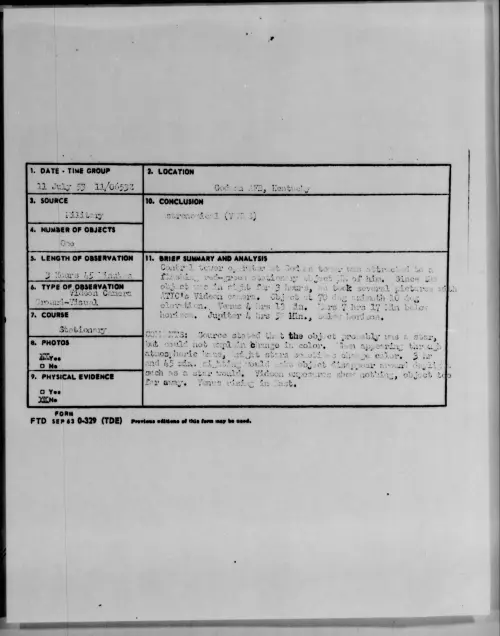 1. DATE - TIME GROUP
2. LOCATION
11 July 11/0653Z
AFB, Kentucky
3. SOURCE
10. CONCLUSION
Military
Astronomical
4. NUMBER OF OBJECTS
One
5. LENGTH OF OBSERVATION
11. BRIEF SUMMARY AND ANALYSIS
3 Hours 45 Minutes
Control tower operator at tower was attracted to a
flashing, red-green stationary object of him. Since the
6. TYPE OF OBSERVATION
object was in sight for 3 hours, he took several pictures with
Videon Camera
Videon camera. Object at 70 deg azimuth 20 deg
Ground-Visual
elevation. Venus 4 hrs 13 Mars 7 hrs 17 Min below
7. COURSE
horizon. Jupiter 4 hrs Min., below horizon.
Stationary
8. PHOTOS
COMMENTS: Source stated that the object probably was a star,
Yes
but could not explain change in color. When appearing through
□ No
atmospheric bright stars sometimes change color. 3 hr
9. PHYSICAL EVIDENCE
and 45 min. sighting would object disappear around
such as a star would. Videon exposures show nothing, object too
□ Yes
far away. Venus rising in East.
No
FORM
FTD SEP 63 0-329 (TDE) Previous editions of this form may be used.